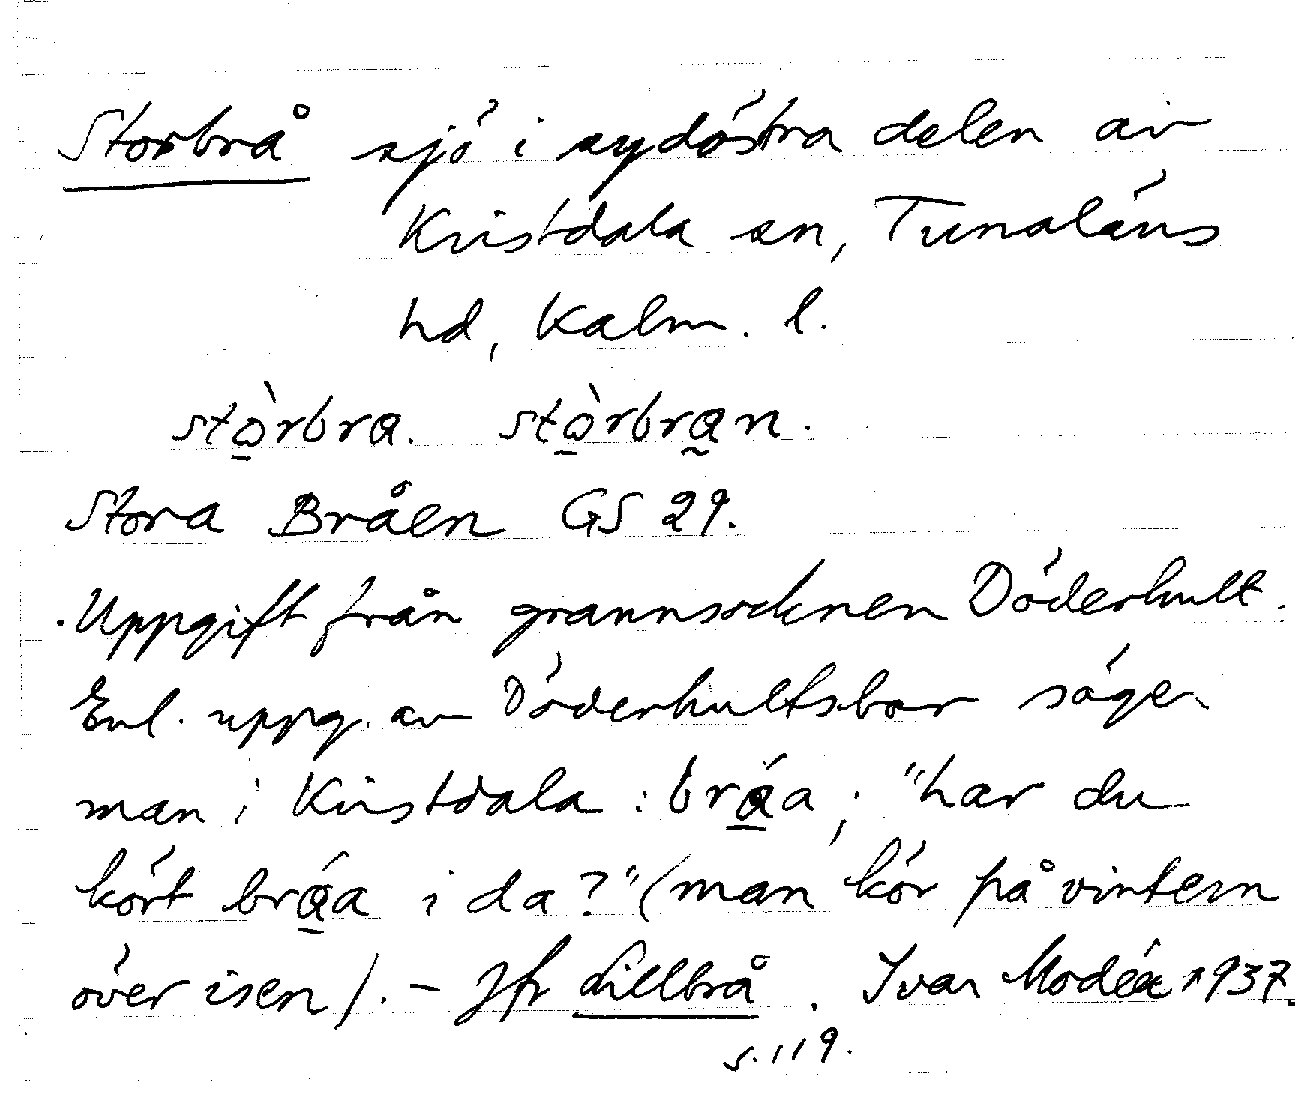 Storbrå sjö i sydöstra delen av
Kristdala sn, Tunaläns
hd, Kalm. l.
stò̱rbra. stò̱rbra̰n.
Stora Bråen GS 29.
Uppgift från grannsocknen Döderhult.
Enl. uppg. av Döderhultsbor säger
man i Kristdala: brá̱a; "har du
kört brá̱a i da?" (man kör på vintern
över isen). – Jfr Lillbrå. Ivar Modéer 1937.
s. 119.